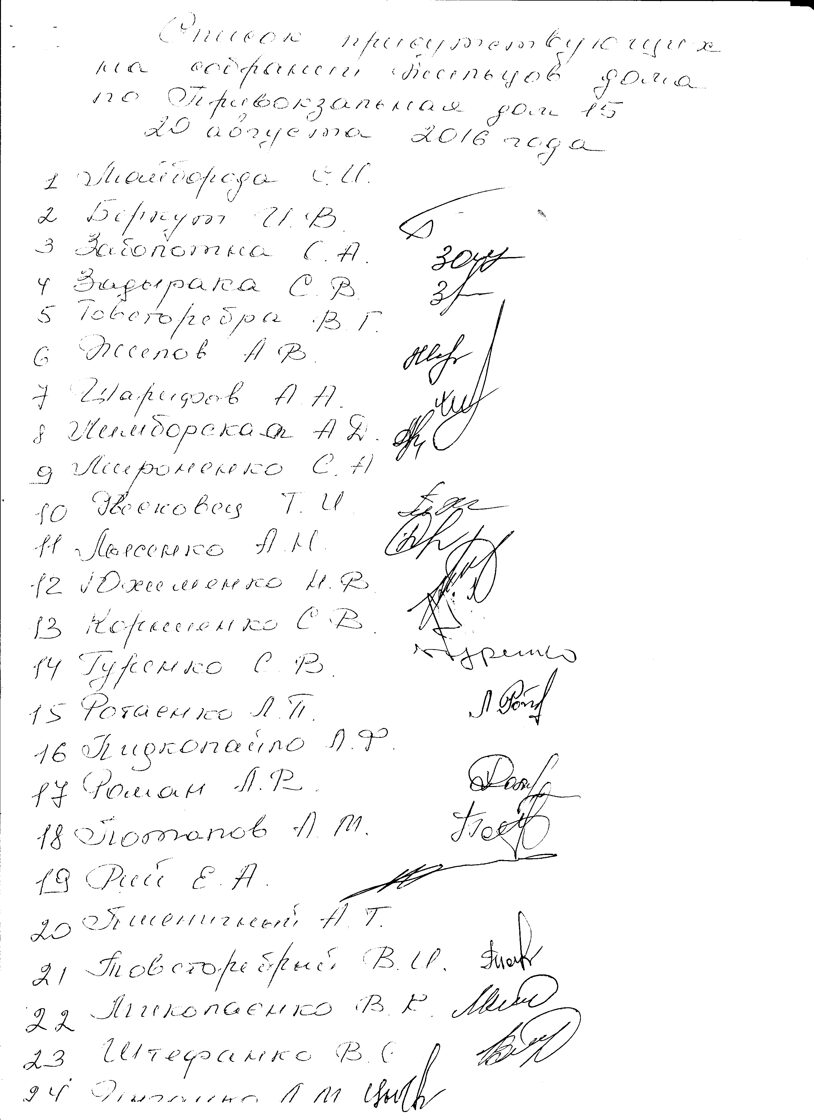 Список присутствующих
на собрании жильцов дома
по Привокзальная дом 15
20 августа 2016 года
1 Майборода С.И.
2 Беркут И.В.
3 Заболотна С.А. 
4 Задырака С.В.
5 Товсторебра В.Г.
6 Жилов А.В.
7 Шарифов А.А.
8 Цимборская А.Д.
9 Мироненко С.А
10 Т.И.
11 Лысенко А.Н.
12 Юхименко Н.В.
13 Корниенко С.В.
14 Гуренко С.В. Гуренко
15 Ротаенко Л.П.
16 Пидкопайло Л.Ф.
17 Роман Л.В.
18 Потапов А.М.
19 Рий Е.А.
20 Пшеничный А.Т.
21 Товсторебрый В.И.
22 Миколаенко В.К.
23 Штефанко В.С
24 Л М